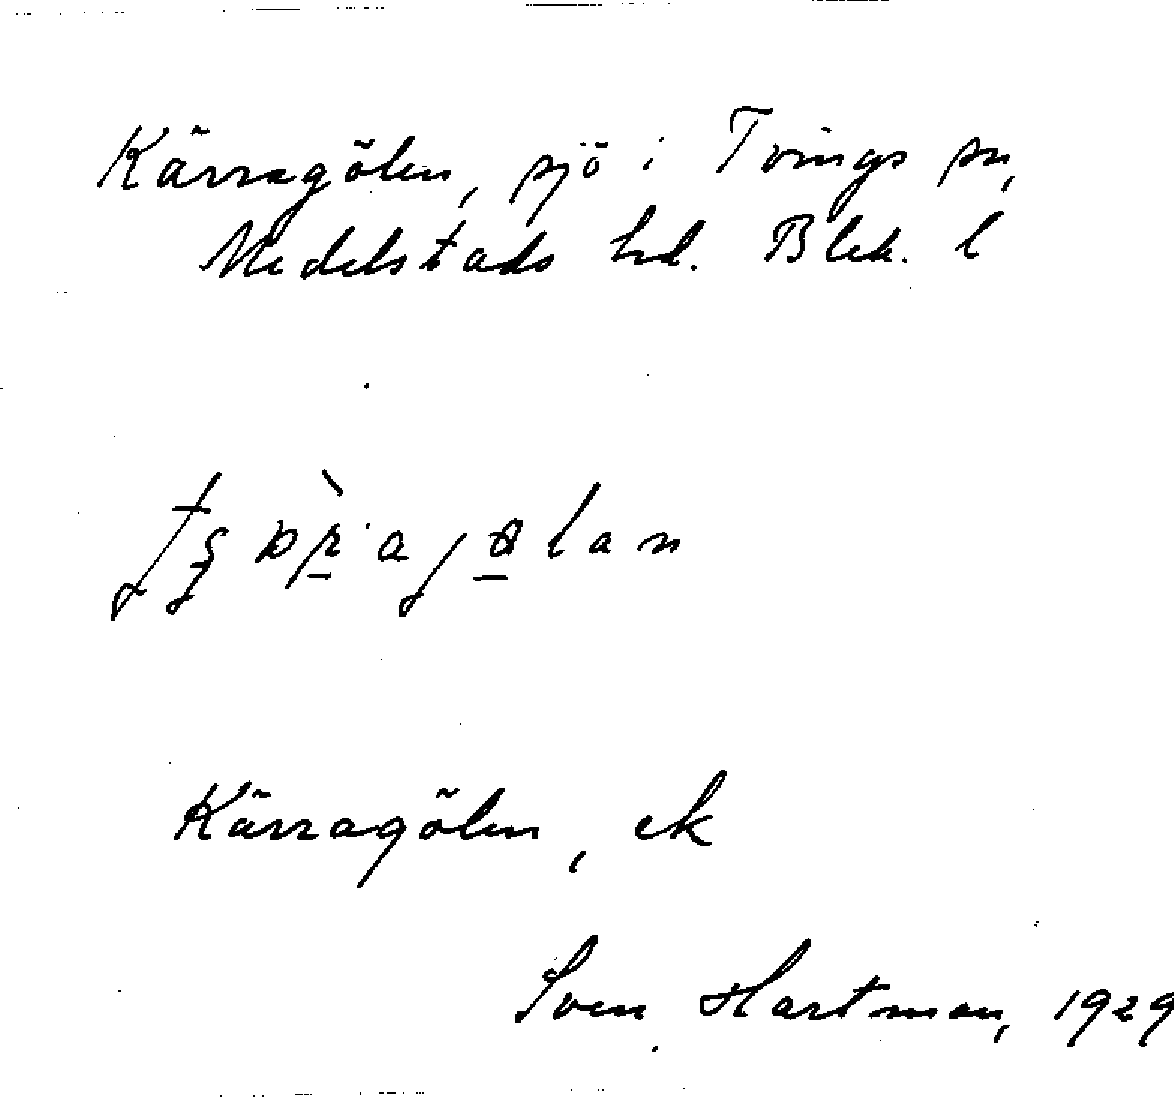 Kärragölen, sjö i Tvings sn,
Medelstads hd. Blek. l
Kärragölen, ek
Sven Hartman, 1929